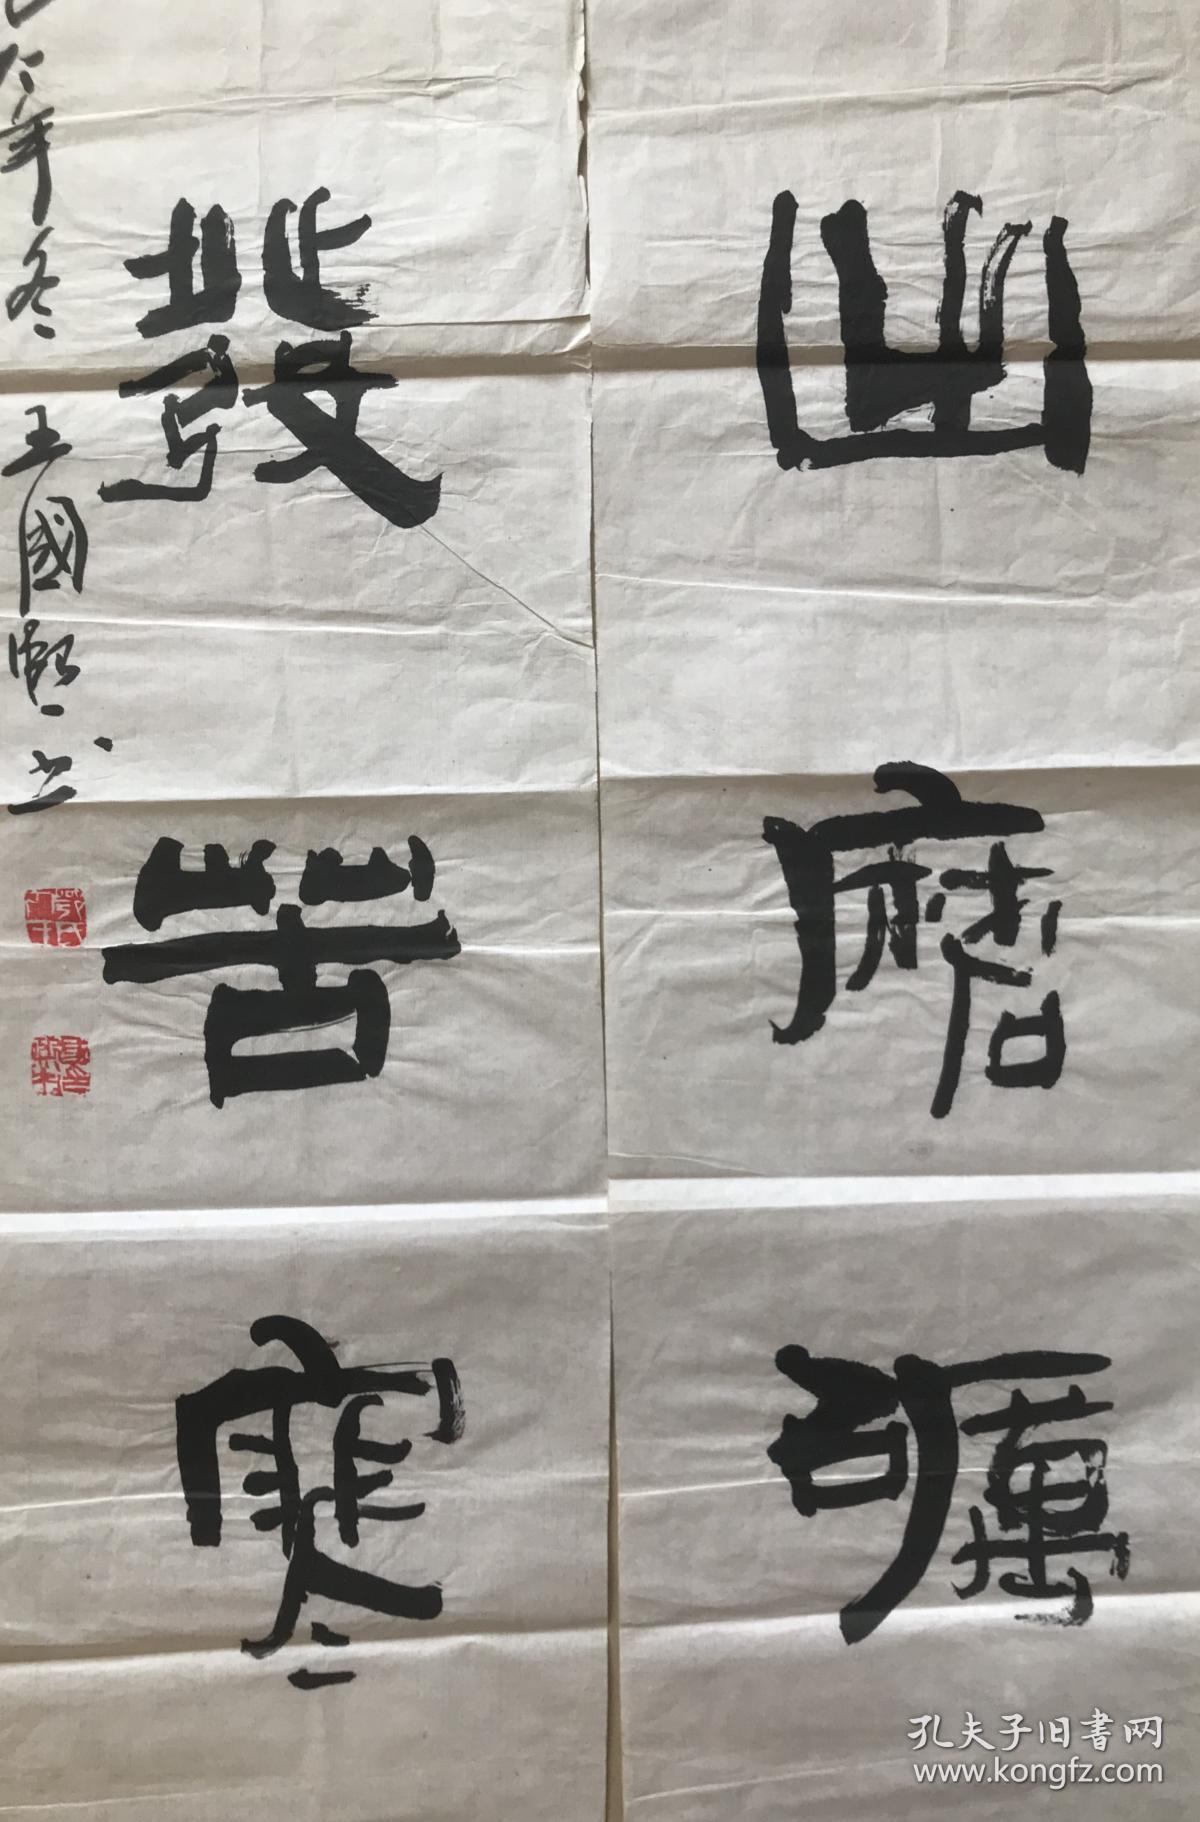 出磨礪
發苦寒
年冬王國熙书
孔夫子旧書网
www.kongfz.com